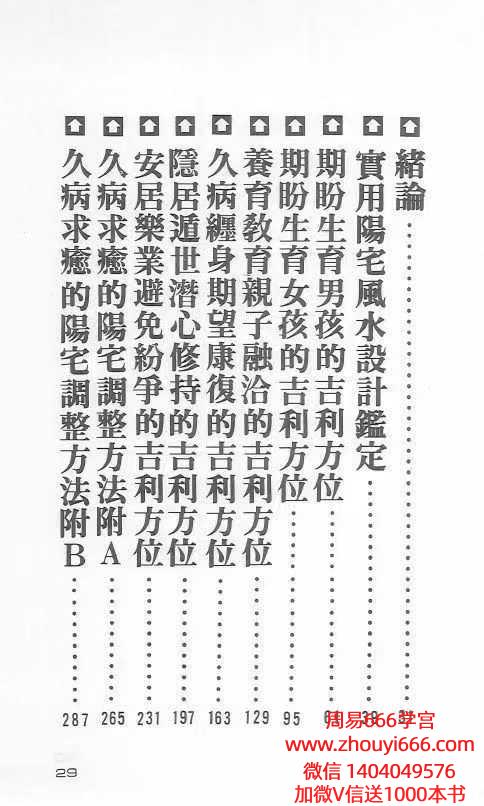 緒論
實用陽宅風水設計鑑定
期盼生育男孩的吉利方位
期盼生育女孩的吉利方位 95
養育教育親子融洽的吉利方位 129
久病纏身期望康復的吉利方位 163
隱居遁世潛心修持的吉利方位 197
安居樂業避免紛爭的吉利方位 231
久病求癒的陽宅調整方法附A 265
久病求癒的陽宅調整方法附B 287
29
周易666学宫
www.zhouyi666.com
微信 1404049576
加微V信送1000本书